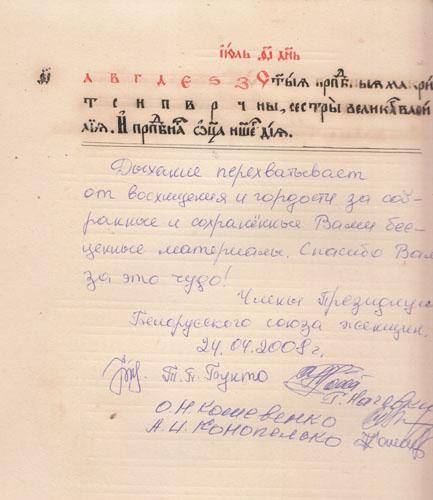 А҃ В҃ Г҃ Д҃ Е҃ Ѕ҃ З҃ Ст҃ы́ѧ прпⷣбныѧ макри
ны, сестры̀ великагѡ васи
лїѧ. И҆ прпⷣбнагѡ ѻ҆тца̀ нш҃егѡ дїѧ.
Дыхание перехватывает
от восхищения и гордости за соб-
ранные и сохранённые Вами бес-
ценные материалы. Спасибо Вам
за это чудо!
Члены Президиума
Белорусского союза женщин.
24.04.2008 г.
О.Н. Кошевенко
А.И. Конопелько